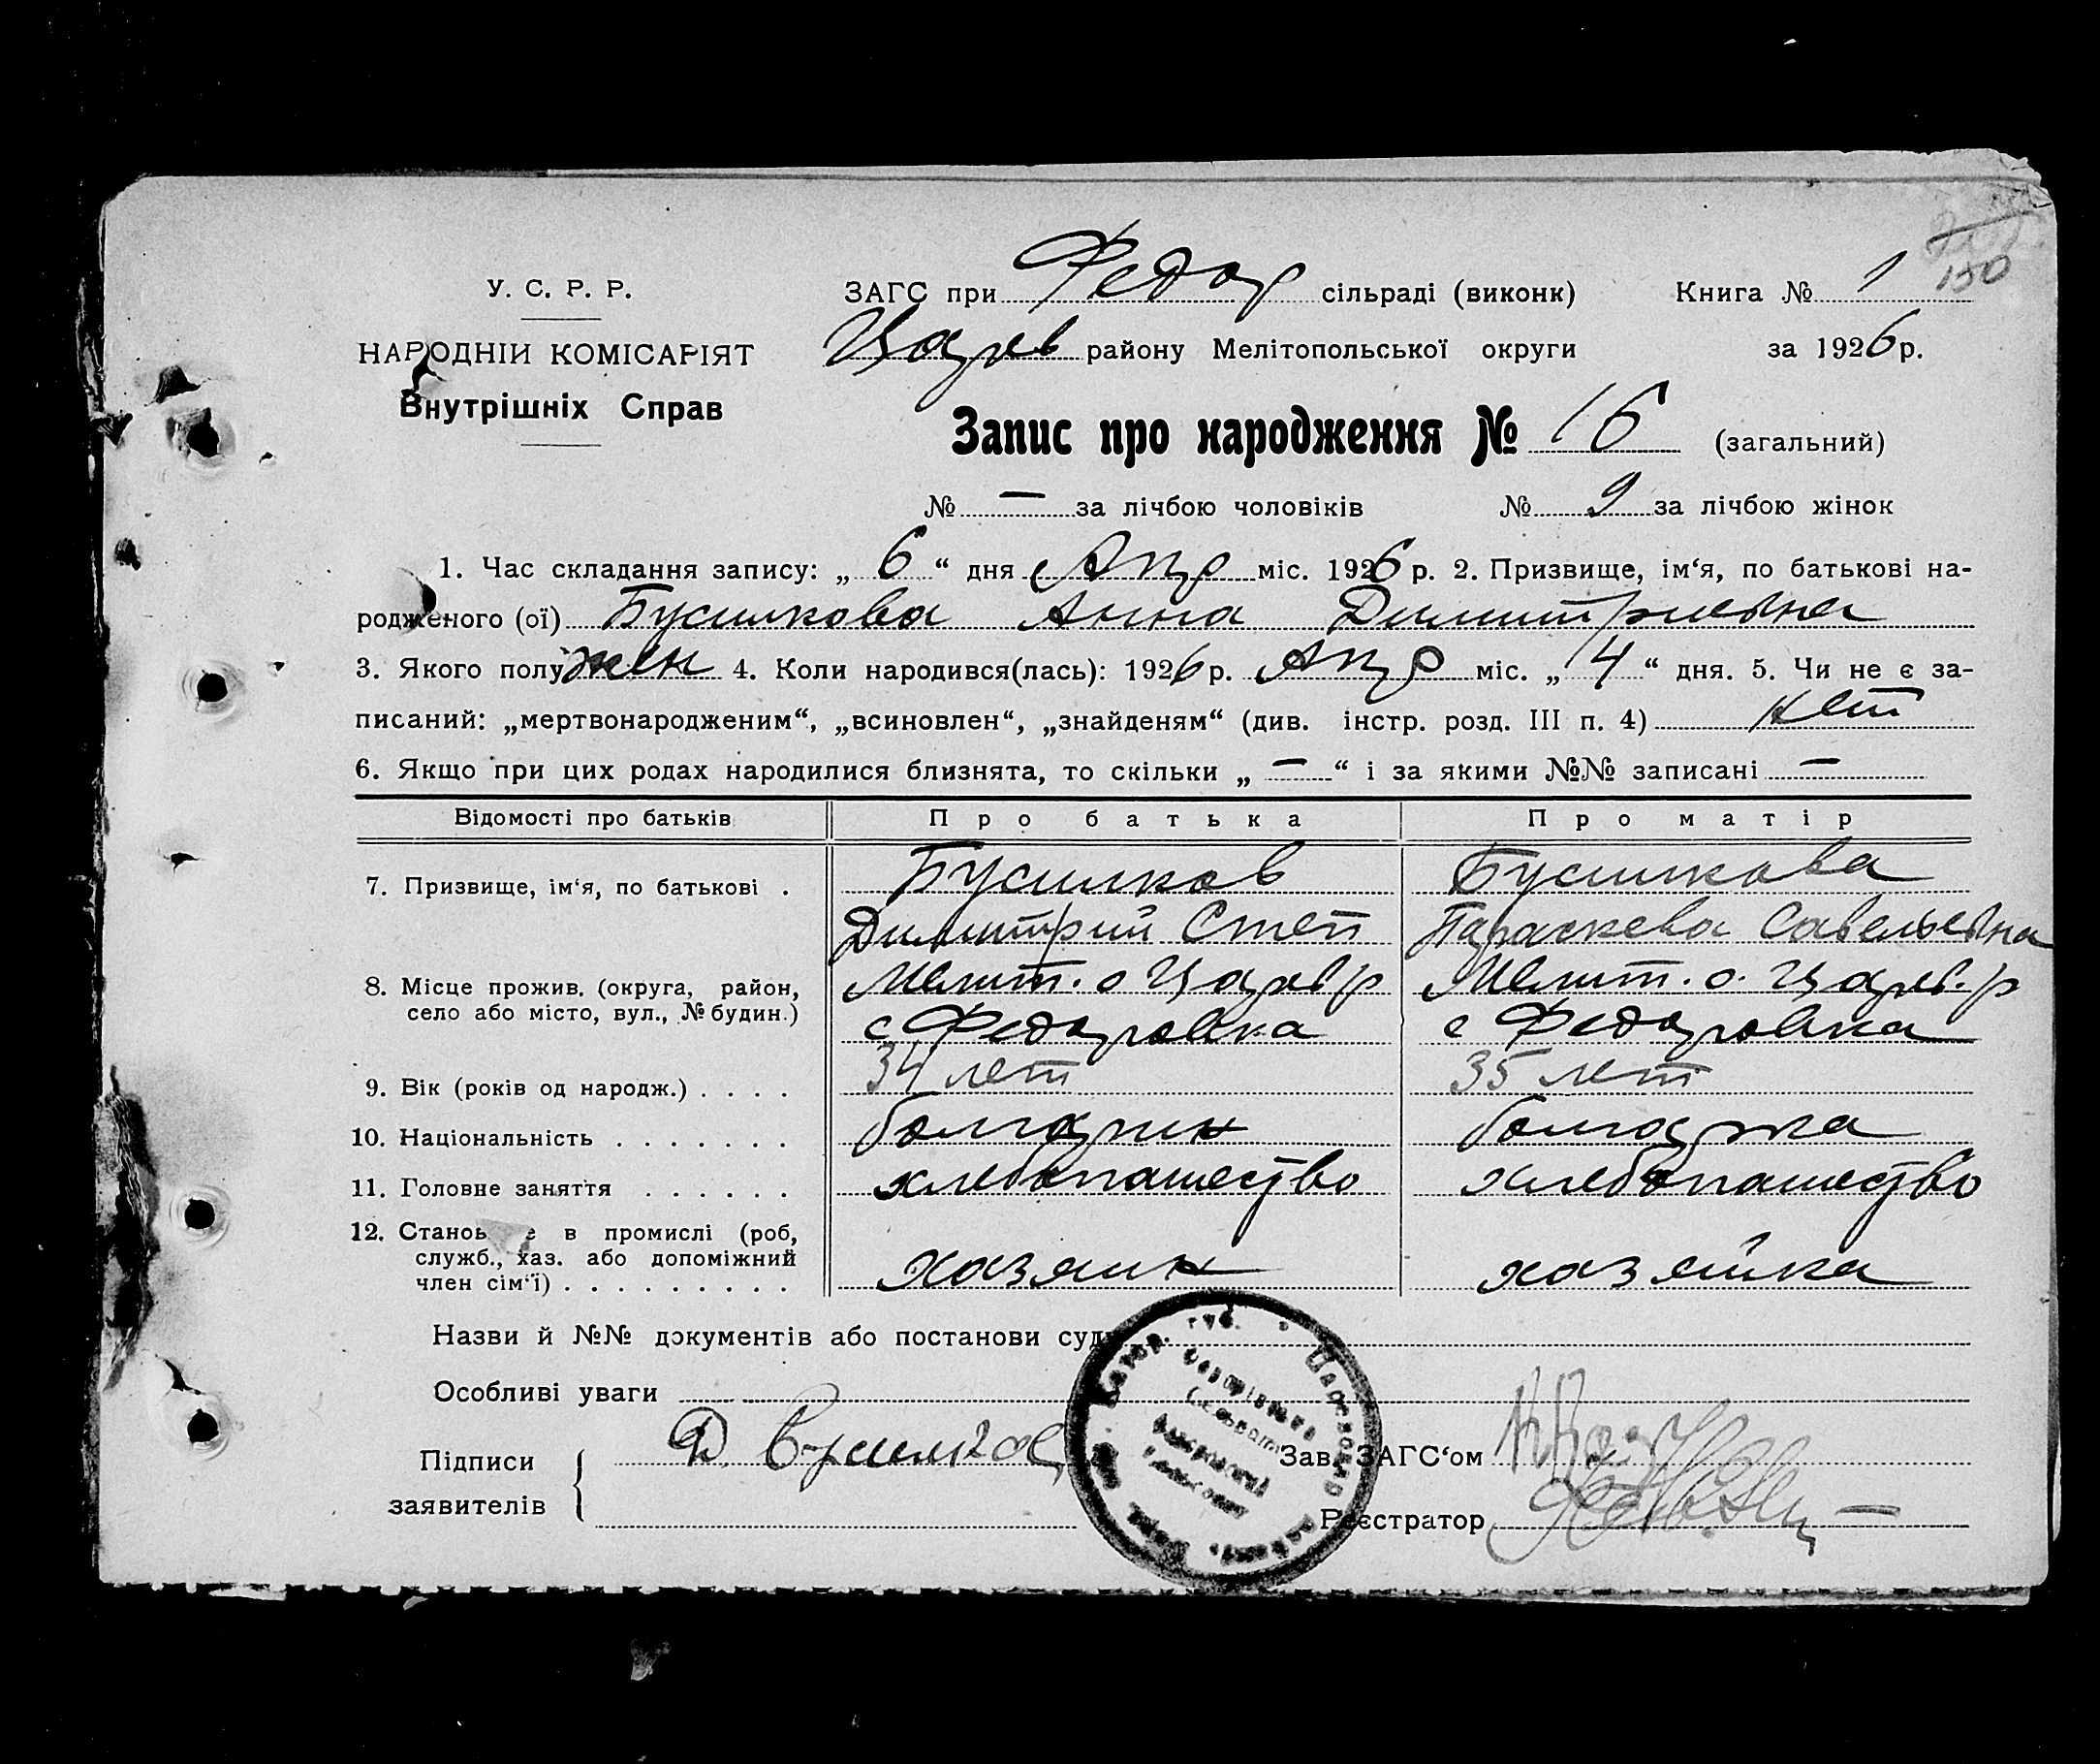 150
У. С. Р. Р.
НАРОДНІЙ КОМІСАРІЯТ
Внутрішніх Справ
ЗАГС при Федор сільраді (виконк) Книга № 1
Царев району Мелітопольської округи за 1926 р.
Запис про народження № 16 (загальний)
№ — за лічбою чоловіків № 9 за лічбою жінок
1. Час складання запису: „ 6 “ дня Апр міс. 1926 р. 2. Призвище, ім‘я, по батькові на-
родженого (ої) Бусилкова Анна Димитриевна
3. Якого полу жен 4. Коли народився(лась): 1926 р. Апр міс. „ 4 “ дня. 5. Чи не є за-
писаний: „мертвонародженим“, „всиновлен“, „знайденям“ (див. інстр. розд. III п. 4) нет
6. Якщо при цих родах народилися близнята, то скільки „ — “ і за якими №№ записані —
Відомості про батьків Про батька Про матір
7. Призвище, ім‘я, по батькові . Бусилков Бусилкова
Димитрий Степ Параскева Савельевна
8. Місце прожив. (округа, район, Мелит. о Царев р Мелит. о. Царев. р
село або місто, вул., № будин.) с Федоровка с Федоровка
9. Вік (років од народж.) . . . . 34 лет 35 лет
10. Національність . . . . . . . болгарин болгарка
11. Головне заняття . . . . . . хлебопашество хлебопашество
12. в промислі (роб,
служб., хаз. або допоміжний
член сім‘ї) . . . . . . . . . хазяин хазяйка
Назви й №№ документів або постанови
Особливі уваги
Підписи Д. Зав. ЗАГС‘ом
заявителів Реєстратор